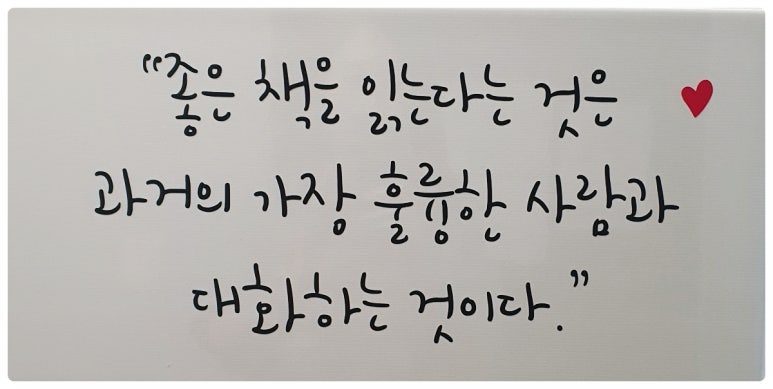 “좋은 책을 읽는다는 것은
과거의 가장 훌륭한 사람과
대화하는 것이다.”